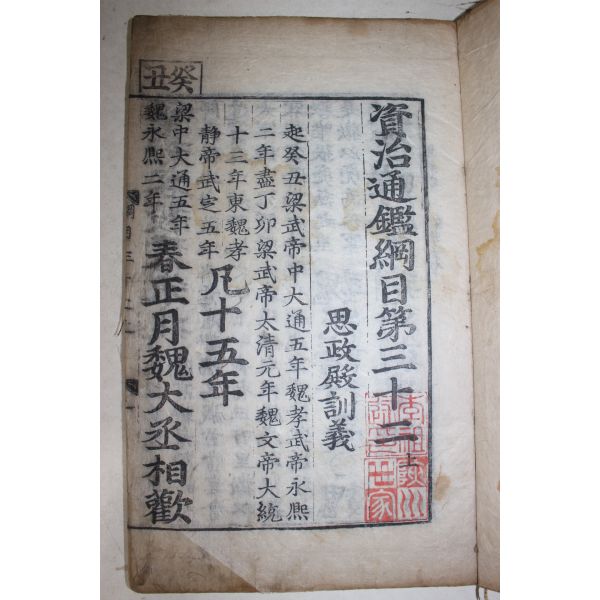 資治通鑑綱目第三十二上
思政殿訓義
起癸丑梁武帝中大通五年魏孝武帝永熙
二年盡丁卯梁武帝太清元年魏文帝大統
十三年東魏孝
静帝武定五年
凡十五年
癸丑
梁中大通五年
魏永熙二年
春正月魏大丞相歡